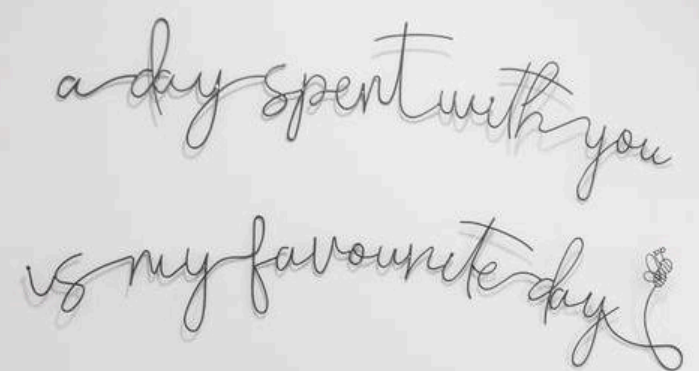 a day spent with you
is my favourite day